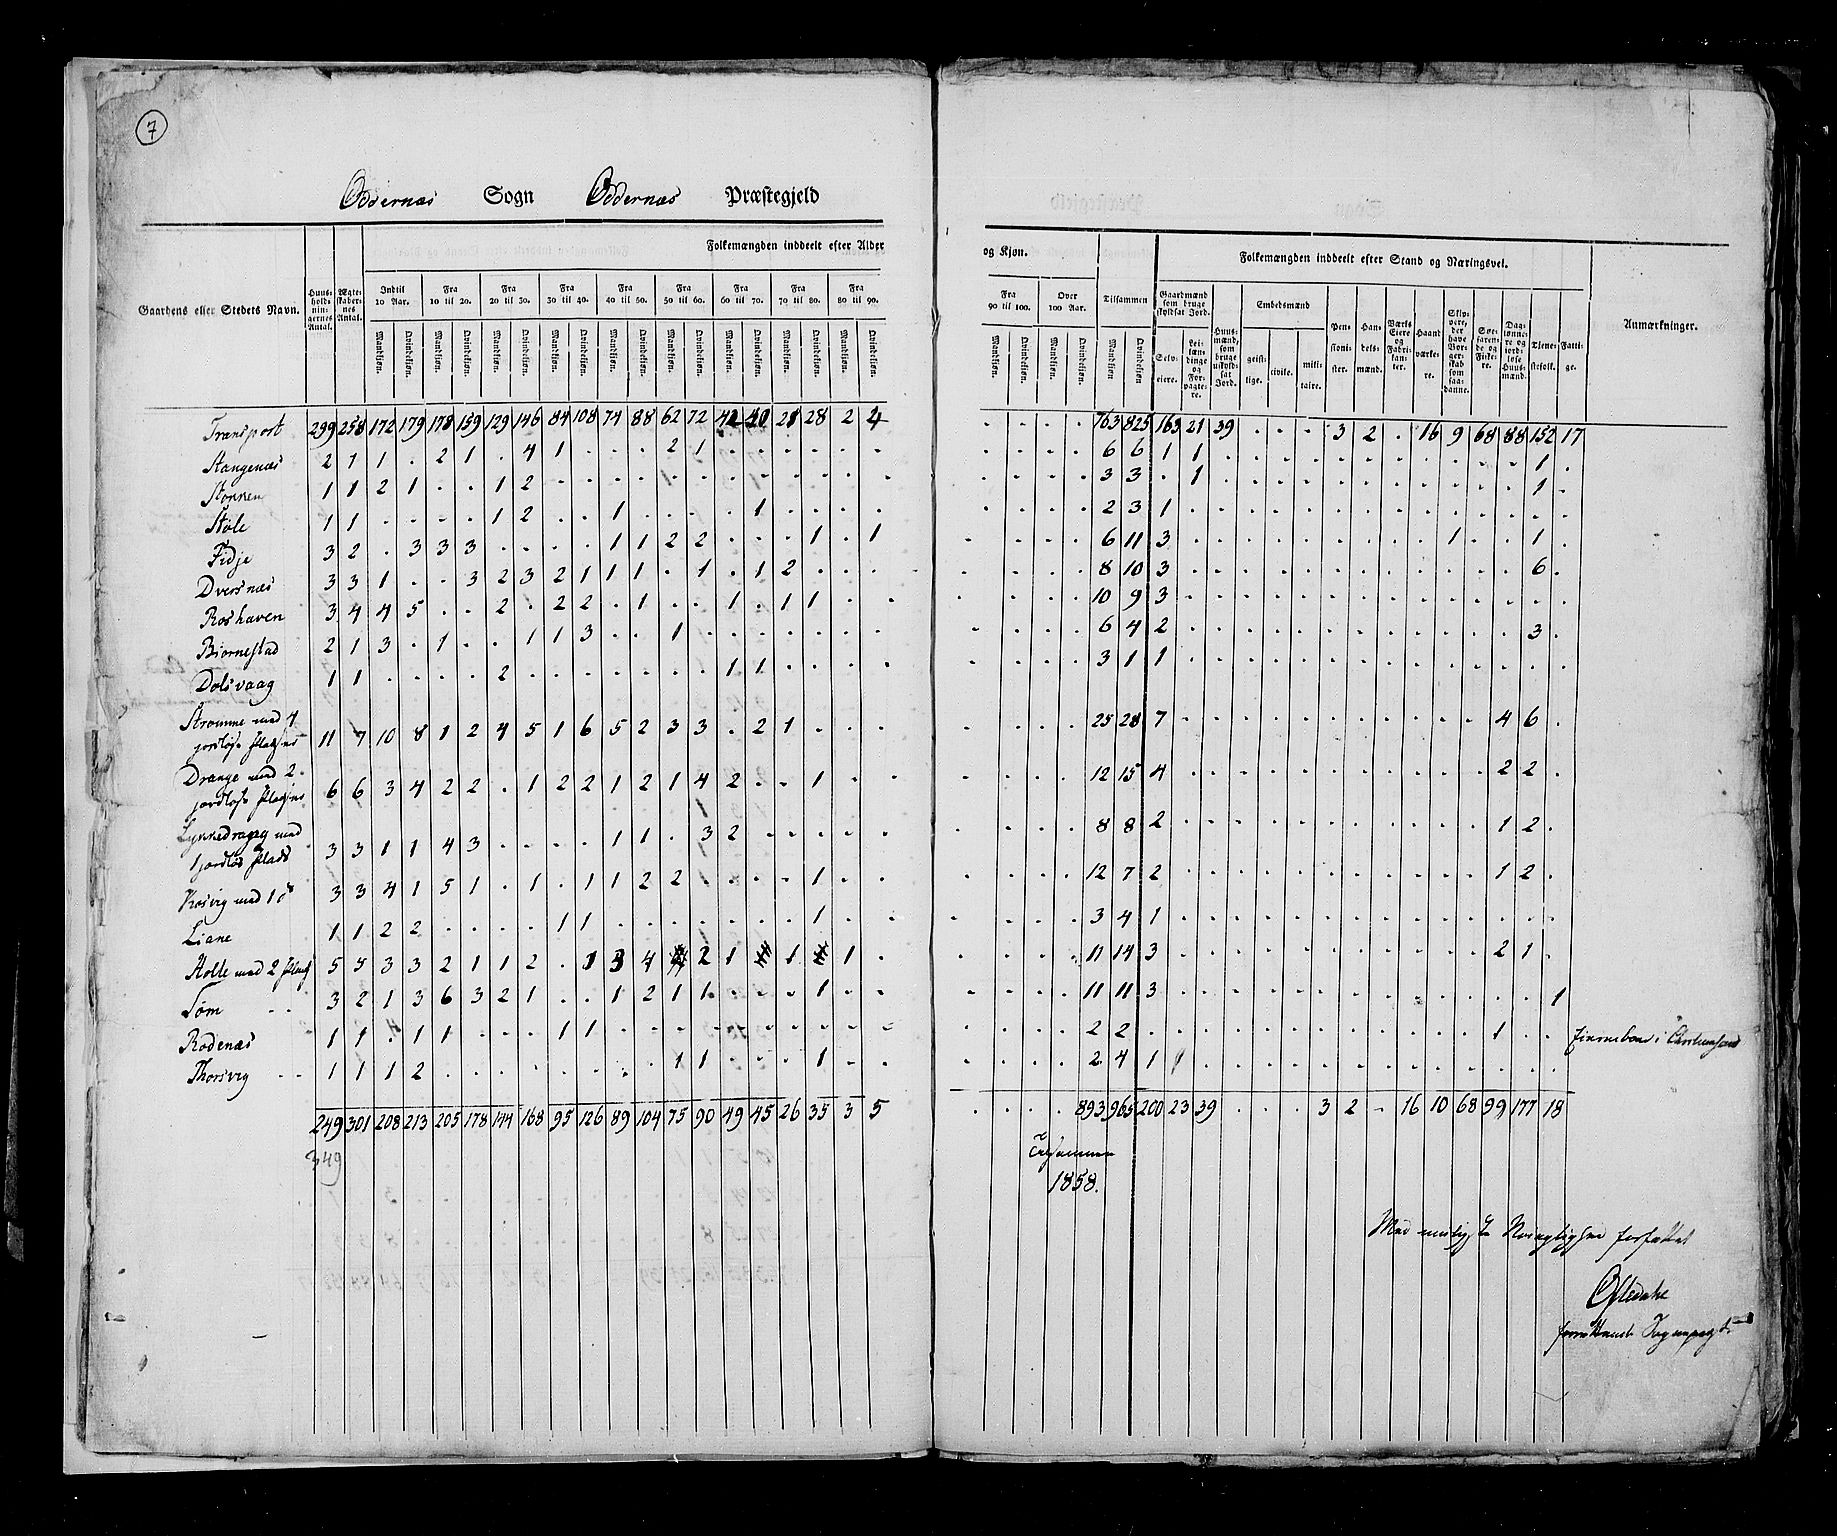 7
Oddernæs Sogn Oddernæs Præstegjeld
Folkemængden inddeelt efter Alder og Kjøn.
Folkemængden inddeelt efter Stand og Næringsvei.
Gaardens eller Stedets Navn. Huus-holdnin-gernes Antal. Ægte-skaber-nes Antal. Indtil 10 Aar. Fra 10 til 20. Fra 20 til 30. Fra 30 til 40. Fra 40 til 50. Fra 50 til 60. Fra 60 til 70. Fra 70 til 80. Fra 80 til 90. Fra 90 til 100. Over 100 Aar. Tilsammen
Mandkjøn. Qvindekjøn. Mandkjøn. Qvindekjøn. Mandkjøn. Qvindekjøn. Mandkjøn. Qvindekjøn. Mandkjøn. Qvindekjøn. Mandkjøn. Qvindekjøn. Mandkjøn. Qvindekjøn. Mandkjøn. Qvindekjøn. Mandkjøn. Qvindekjøn. Mandkjøn. Qvindekjøn. Mandkjøn. Qvindekjøn. Mandkjøn Qvindekjøn
Gaardmænd som bruge skyldsat Jord. Selv-eiere. Lei-læn-dinge og For-pagte-re. Huus-mænd, som bruge uskyld-sat Jord. Embedsmænd geist-lige. civile. mili-taire. Pen-sioni-ster. Han-dels-mænd. Værks Eiere og Fabri-kan-ter. Haand værke-re. Skip-pere, der have Bor-ger-skab som saa-danne. Søe-farende og Fiske-re. Dag-lønne-re og jord-løse Huus-mænd. Tjene-stefolk. Fatti-ge. Anmærkninger.
Transport 299 258 172 179 178 159 129 146 84 108 74 88 62 72 42 40 21 28 2 4 763 825 163 21 39 3 2 16 9 68 88 152 17
Stangenæs 2 1 1 . 2 1 . 4 1 . . . 2 1 6 6 1 1 1
Stokken 1 1 2 1 . . 1 2 3 3 . 1 1
Støle 1 1 . . . . 1 2 . . 1 . . . . 1 2 3 1
Fidje 3 2 . 3 3 3 . . . . 1 1 2 2 . . . 1 . 1 6 11 3 1 1
Dversnæs 3 3 1 . . 3 2 3 2 1 1 1 . 1 . 1 2 8 10 3 6
Roshaven 3 4 4 5 . . 2 . 2 2 . 1 . . 1 . 1 1 10 9 3
Biørnestad 2 1 3 . 1 . . 1 1 3 . . 1 6 4 2 3
Dolsvaag 1 1 . . . . 2 . . . . . . . 1 1 3 1 1
Strømme med 4
jordløse Pladsse 11 7 10 8 1 2 4 5 1 6 5 2 3 3 . 2 1 25 28 7 4 6
Drange med 2
jordløse Pladse 6 6 3 4 2 2 . 1 2 2 1 2 1 4 2 . . 1 12 15 4 2 2
Lykkedragg med
1 jordløs Plads 3 3 1 1 4 3 . . . . 1 1 . 3 2 8 8 2 1 2
Korsvig med 1 do 3 3 4 1 5 1 . 1 . 1 1 2 2 . . . . 1 12 7 2 1 2
Liane 1 1 2 2 . . . . 1 1 . . . . . . . 1 3 4 1
Holte med 2 Plads 5 5 3 3 2 1 1 2 . 1 3 4 2 1 1 1 11 14 3 2 1
Søm 3 2 1 3 6 3 2 1 . . 1 2 1 1 . . . 1 11 11 3 1
Rodenæs 1 1 . 1 1 . . . 1 1 2 2 1
Thorsvig 1 1 1 2 . . . . . . . . 1 1 . . . 1 2 4 1
249 301 208 213 205 178 144 168 95 126 89 104 75 90 49 45 26 35 3 5 893 965 200 23 39 3 2 16 10 68 99 177 18
349
Tilsammen
1858.
Med muligste Nøiagtighed forfattet